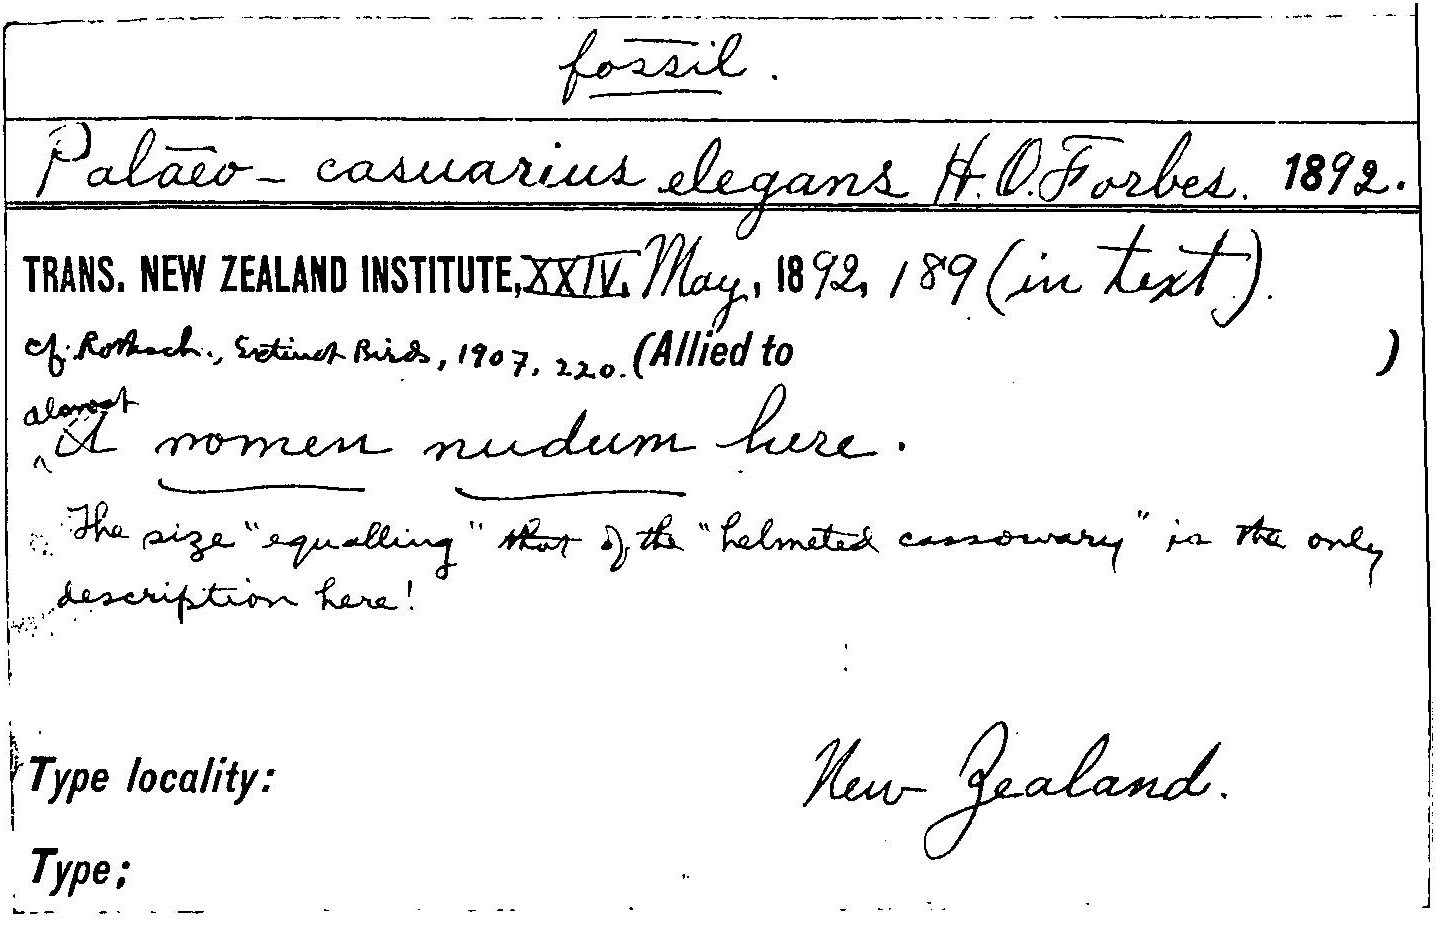 fossil.
Palaeo-casuarius elegans H.O. Forbes. 1892.
TRANS. NEW ZEALAND INSTITUTE, XXIV, May, 1892, 189 (in text).
cf. Rothsch., Extinct Birds, 1907, 220. (Allied to )
almost
A nomen nudum here.
The size "equalling" that of the "helmeted cassowary" is the only
description here!
Type locality: New Zealand.
Type;